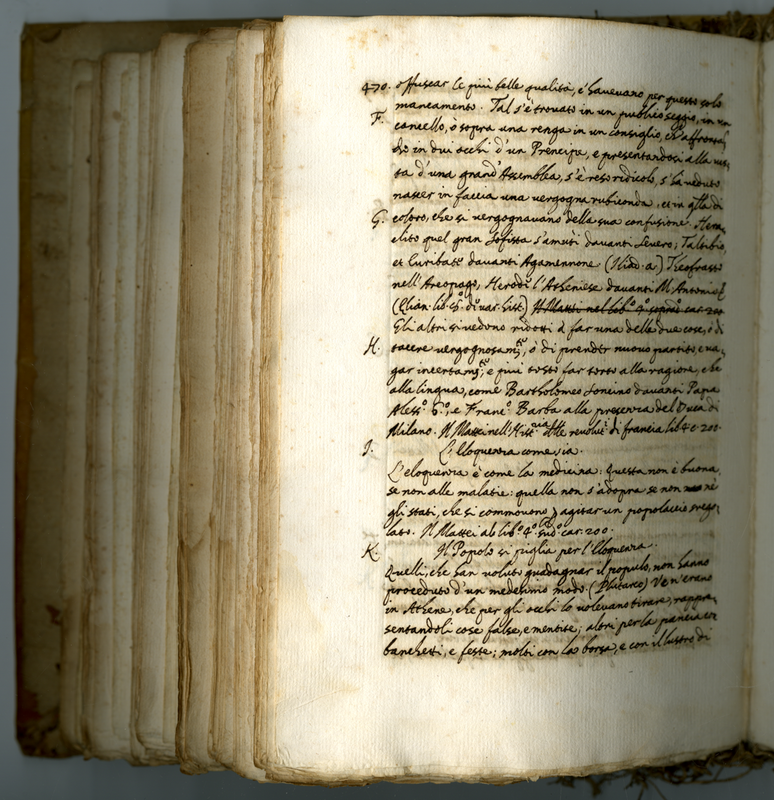 470. offuscar le più belle qualità, e s'havevano per questo solo
mancamento. Tal s'è trovato in un publico seggio, in un
F. cancello, ò sopra una renga in un consiglio, ch' affrontan
do in dui occhi d'un Prencipe, e presentandosi alla vis
ta d'una grand' Assemblea, s'è reso ridicolo, s'hà veduto
nascer in faccia una vergogna rubiconda, et in qlla di
G. coloro, che si vergognavano della sua confusione. Hera
clito quel gran Sofista s'amutì davanti Severo; Taltibio,
et Euribate davanti Agamennone (Iliad. a.) Teofrasto
nell'Areopago, Herode l'Atheniese davanti M. Antonio
(Elian. lib. di var. hist.) Il Mattei nel lib.º 4.º sopra car. 200
Gli altri si vedono ridotti à far una delle due cose, ò di
H. tacere vergognosamte, ò di prender nuovo partito, e va,
gar incertamte, e più tosto far torto alla ragione, che
alla lingua, come Bartholomeo Soncino davanti Papa
Aless.º 6.º, e Franc.º Barba alla presenza del Duca di
Milano. Il Mattei nell'Hist. delle revolut. di francia lib. 4 c. 200.
J. L'Eloquenza come sia.
L'eloquenza è come la medicina: Questa non è buona,
se non alle malatie: quella non s'adopra se non nè
gli stati, che si commovono, agitar un popolaccio srego,
lato. Il Mattei al lib.º 4.º sud.º car. 200.
K. Il Popolo si piglia per l'Eloquenza.
Quelli, che han voluto guadagnar il populo, non hanno
proceduto d'un medesimo modo. (Plutarco) Ve n'erano
in Athene, che per gli occhi lo volevano tirare, rappre,
sentandoli cose false, e mentite; altri per la pancia con
banchetti, e feste; molti con la borsa, e con il lustro di